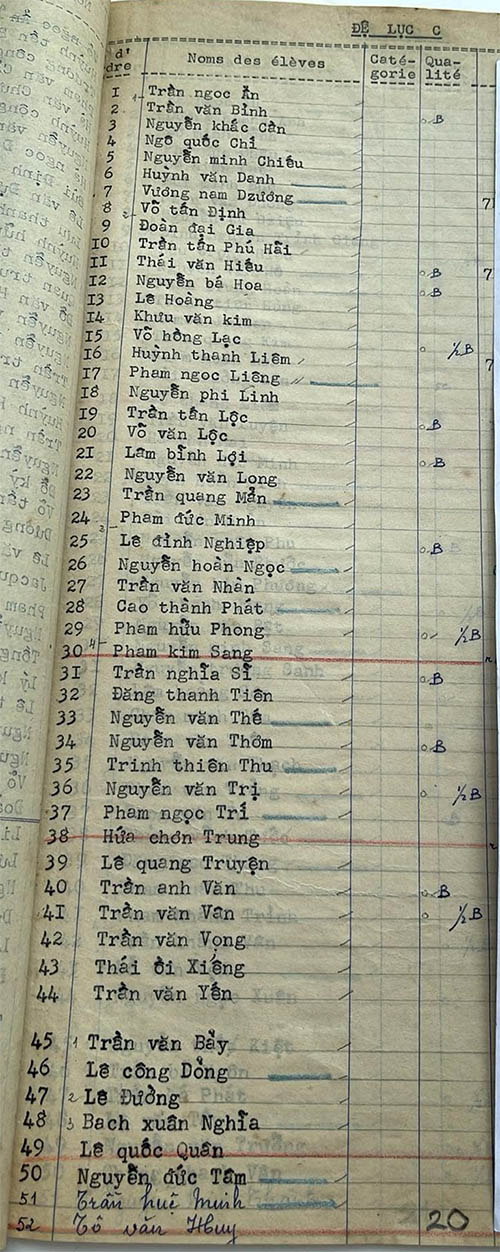 ĐỆ LỤC C
d'
dre Noms des élèves Caté- Qua-
gorie lité
I 1 Trần ngọc Ẩn
2 Trần văn Bỉnh B
3 Nguyễn khắc Cần
4 Ngô quốc Chỉ
5 Nguyễn minh Chiếu
6 Huỳnh văn Danh
7 Vương nam Dzương
8 2 Võ tấn Định
9 Đoàn đại Gia
I0 Trần tấn Phú Hải
II Thái văn Hiếu B
I2 Nguyễn bá Hoa B
I3 Lê Hoàng
I4 Khưu văn kim
I5 Võ hồng Lạc
I6 Huỳnh thanh Liêm ½B
I7 Pham ngoc Liêng
I8 Nguyễn phi Linh
I9 Trần tấn Lộc B
20 Võ văn Lộc
2I Lâm bỉnh Lợi B
22 Nguyễn văn Long
23 Trần quang Mẫn
24 3 Pham đức Minh
25 Lê đình Nghiệp B
26 Nguyễn hoàn Ngọc
27 Trần văn Nhàn
28 Cao thành Phát
29 Pham hữu Phong ½B
30 4 Pham kim Sang
3I Trần nghĩa Sĩ B
32 Đăng thanh Tiên
33 Nguyễn văn Thế
34 Nguyễn văn Thơm B
35 Trinh thiên Thu
36 Nguyễn văn Trị ½B
37 Pham ngọc Trí
38 Hứa chơn Trung
39 Lê quang Truyện
40 Trần anh Văn B
4I Trần văn Vân ½B
42 Trần văn Vọng
43 Thái ôi Xiêng
44 Trần văn Yến
45 1 Trần văn Bảy
46 Lê công Dỏng
47 2 Lê Đường
48 3 Bach xuân Nghĩa
49 Lê quốc Quân
50 Nguyễn đức Tâm
51 Trần huệ Minh
52 Tô văn Huy
20